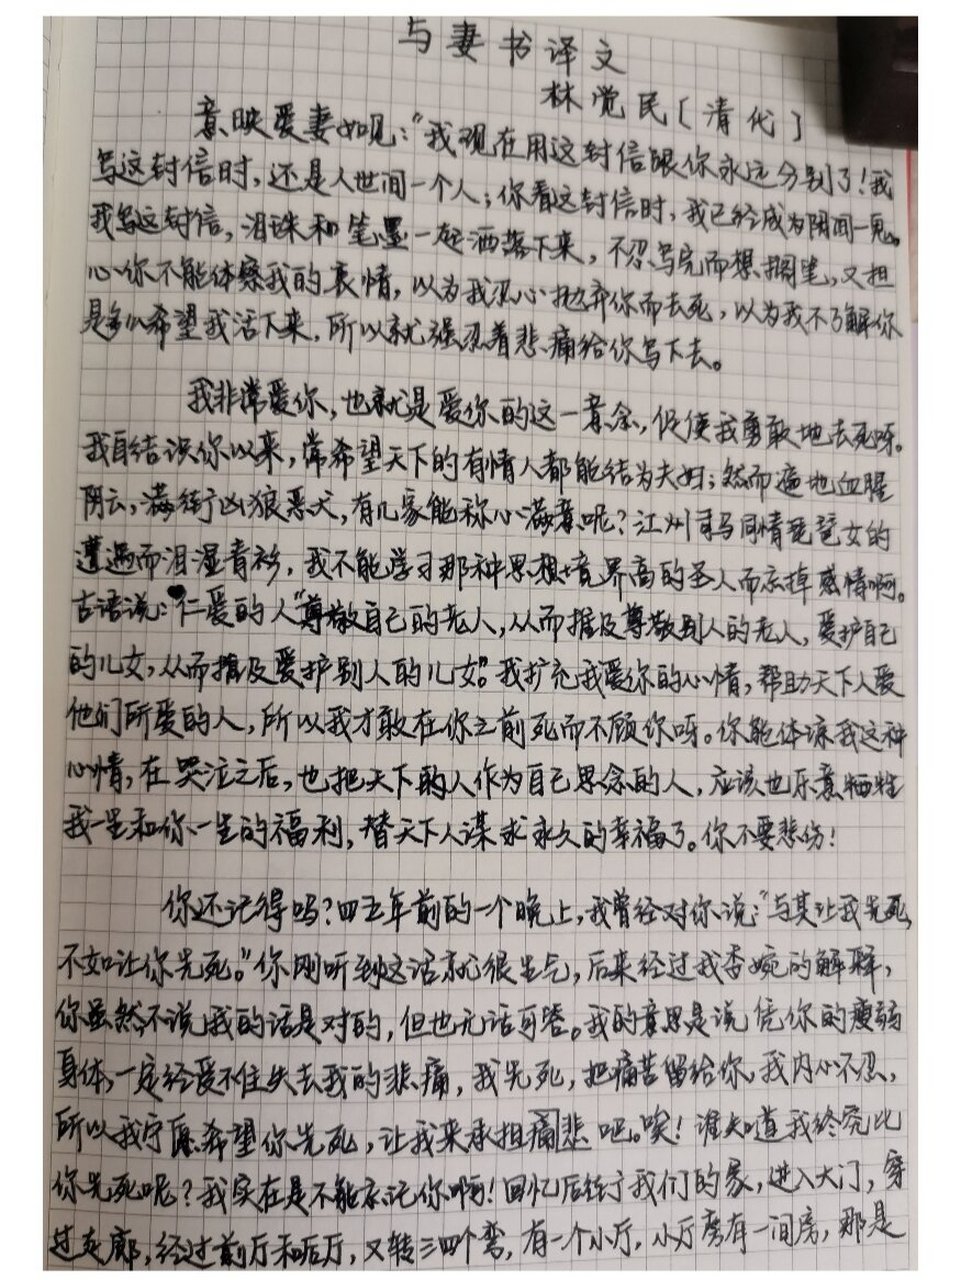 与妻书译文
林觉民[清代]
意映爱妻如见："我现在用这封信跟你永远分别了！我
写这封信时，还是人世间一个人；你看这封信时，我已经成为阴间一鬼。
我写这封信，泪珠和笔墨一起洒落下来，不忍写完而想搁笔，又担
心你不能体察我的衷情，以为我忍心抛弃你而去死，以为我不了解你
是多么希望我活下来，所以就强忍着悲痛给你写下去。
我非常爱你，也就是爱你的这一意念，促使我勇敢地去死呀。
我自结识你以来，常希望天下的有情人都能结为夫妇；然而遍地血腥
阴云，满街凶狼恶犬，有几家能称心满意呢？江州司马同情琵琶女的
遭遇而泪湿青衫，我不能学习那种思想境界高的圣人而忘掉感情啊。
古语说："仁爱的人"尊敬自己的老人，从而推及尊敬别人的老人，爱护自己
的儿女，从而推及爱护别人的儿女"。我扩充我爱你的心情，帮助天下人爱
他们所爱的人，所以我才敢在你之前死而不顾你呀。你能体谅我这种
心情，在哭泣之后，也把天下的人作为自己思念的人，应该也乐意牺牲
我一生和你一生的福利，替天下人谋求永久的幸福了。你不要悲伤！
你还记得吗？四五年前的一个晚上，我曾经对你说："与其让我先死，
不如让你先死。"你刚听到这话就很生气，后来经过我委婉的解释，
你虽然不说我的话是对的，但也无话可答。我的意思是说凭你的瘦弱
身体，一定经受不住失去我的悲痛，我先死，把痛苦留给你，我内心不忍，
所以我宁愿希望你先死，让我来承担痛悲吧。唉！谁知道我终究比
你先死呢？我实在是不能忘记你啊！回忆后街我们的家，进入大门，穿
过走廊，经过前厅和后厅，又转三四个弯，有一个小厅，小厅旁有一间房，那是